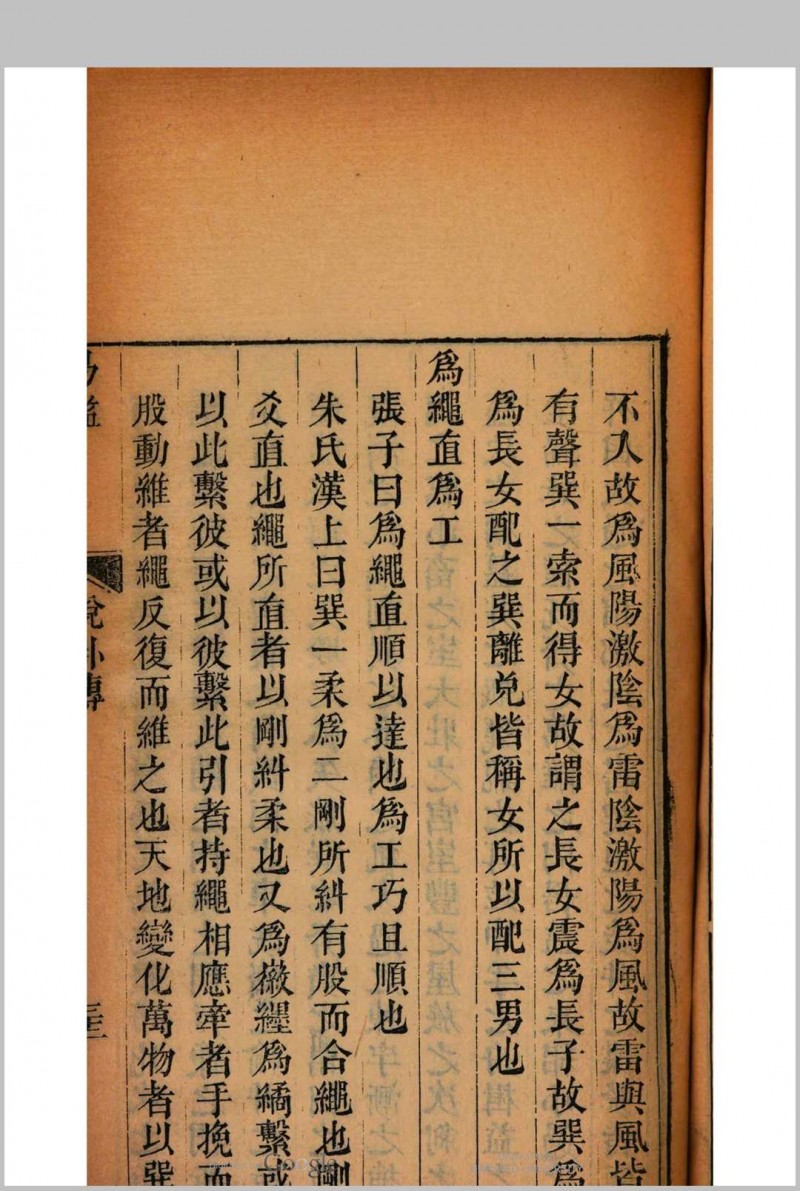 不入故爲風陽激陰爲雷陰激陽爲風故雷與風皆
有聲巽一索而得女故謂之長女震爲長子故巽爲
爲長女配之巽離兌皆稱女所以配三男也
爲繩直爲工
張子曰爲繩直順以達也爲工巧且順也
朱氏漢上曰巽一柔爲二剛所糾有股而合繩也剛
爻直也繩所直者以剛糾柔也又爲徽纆爲繘繫或
以此繫彼或以彼繫此引者持繩相應牽者手挽而
股動維者繩反復而維之也天地變化萬物者以巽
說卦傳
Google